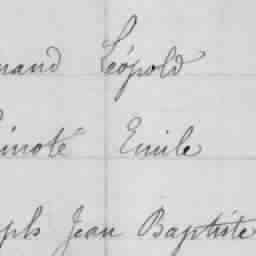 mand Léopold
inoté Emile
ph Jean Baptiste